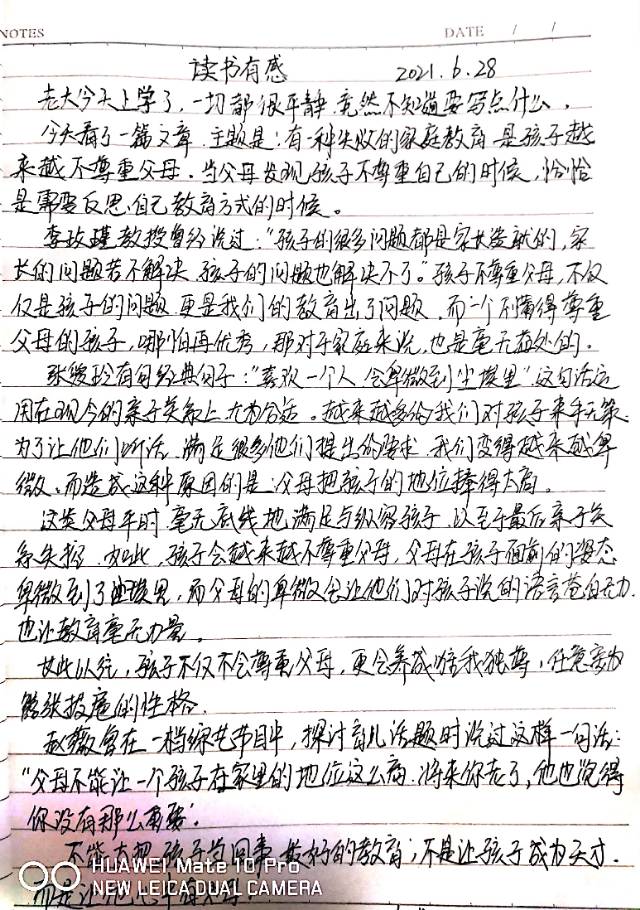 NOTES
DATE / /
读书有感 2021.6.28
老大今天上学了,一切都很平静,竟然不知道要写点什么。
今天看了一篇文章,主题是:有一种失败的家庭教育,是孩子越
来越不尊重父母。当父母发现孩子不尊重自己的时候,恰恰
是需要反思自己教育方式的时候。
李玫瑾教授曾经说过:“孩子的很多问题都是家长造就的,家
长的问题若不解决,孩子的问题也解决不了。”孩子不尊重父母,不仅
仅是孩子的问题,更是我们的教育出了问题,而一个不懂得尊重
父母的孩子,哪怕再优秀,那对于家庭来说,也是毫无益处的。
张爱玲有句经典句子:“喜欢一个人,会卑微到尘埃里”这句话运
用在现今的亲子关系上,尤为合适。越来越多的我们对孩子束手无策.
为了让他们听话,满足很多他们提出的要求,我们变得越来越卑
微。而造成这种原因的是:父母把孩子的地位捧得太高。
这类父母平时毫无底线地满足与纵容孩子,以至于最后亲子关
系失控,如此,孩子会越来越不尊重父母,父母在孩子面前的姿态
卑微到了尘埃里,而父母的卑微会让他们对孩子说的语言苍白无力.
也让教育毫无力量。
如此以往,孩子不仅不会尊重父母,更会养成唯我独尊,任意妄为
嚣张拔扈的性格.
赵薇曾在一档综艺节目中,探讨育儿话题时说过这样一句话:
“父母不能让一个孩子在家里的地位这么高.将来你老了,他也觉得
你没有那么重要”.
不能太把孩子当回事,最好的教育,不是让孩子成为天才.
而是让他
HUAWEI Mate 10 Pro
NEW LEICA DUAL CAMERA